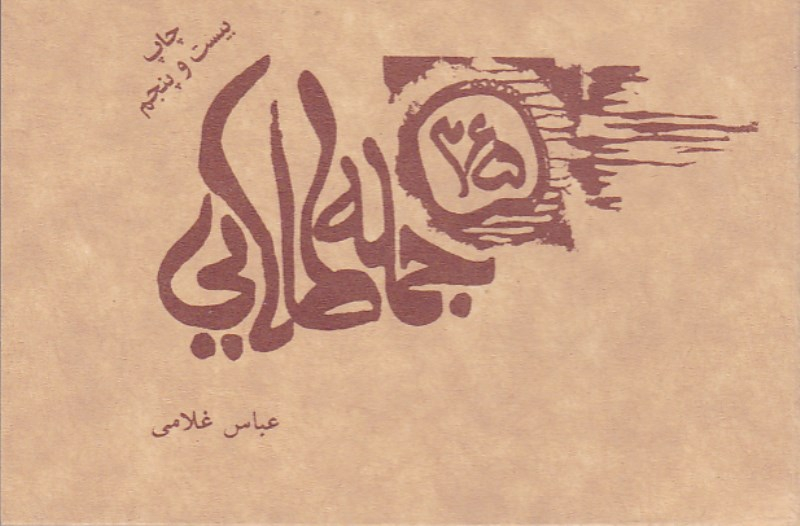 چاپ
بیست و پنجم
۲۶۵
جمله طلایی
عباس غلامی